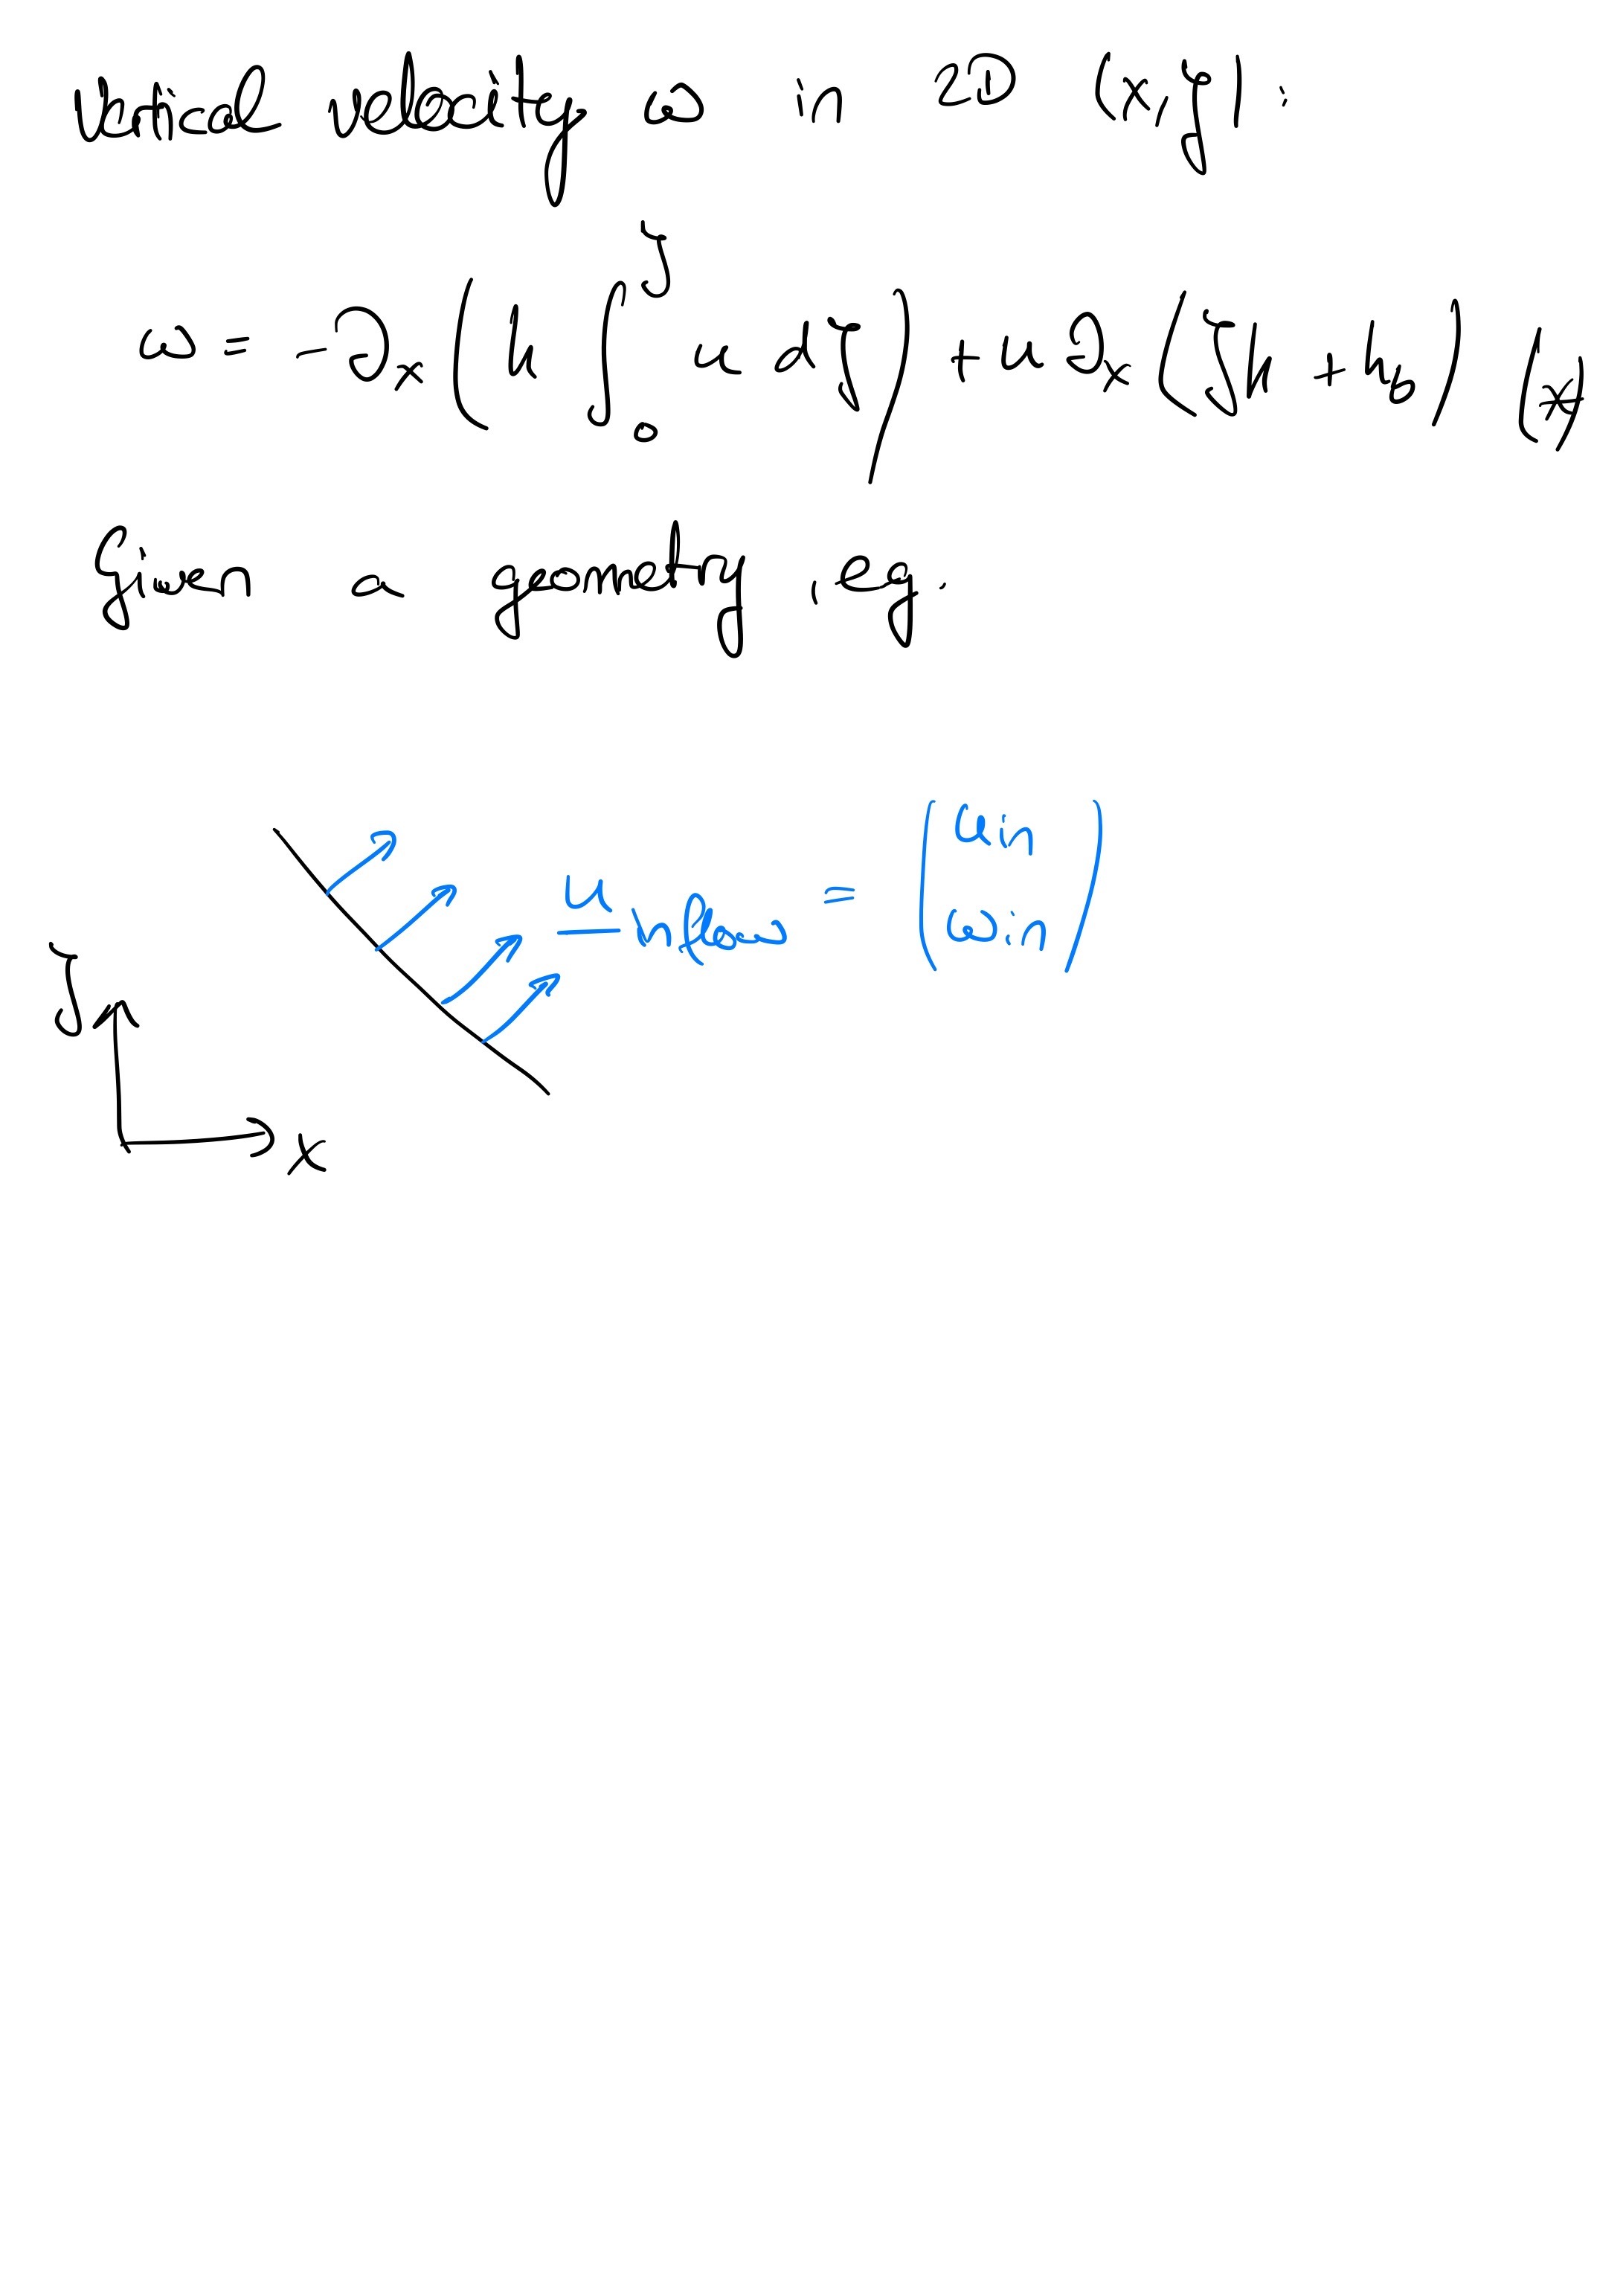 Vertical velocity ω in 2D (x,y):
ω = -∂ₓ(h ∫₀^ζ u dζ) + u ∂ₓ(ζh + h_b) (*)
Given a geometry, eg.
u inflow = (u in
ω in)
ζ
x